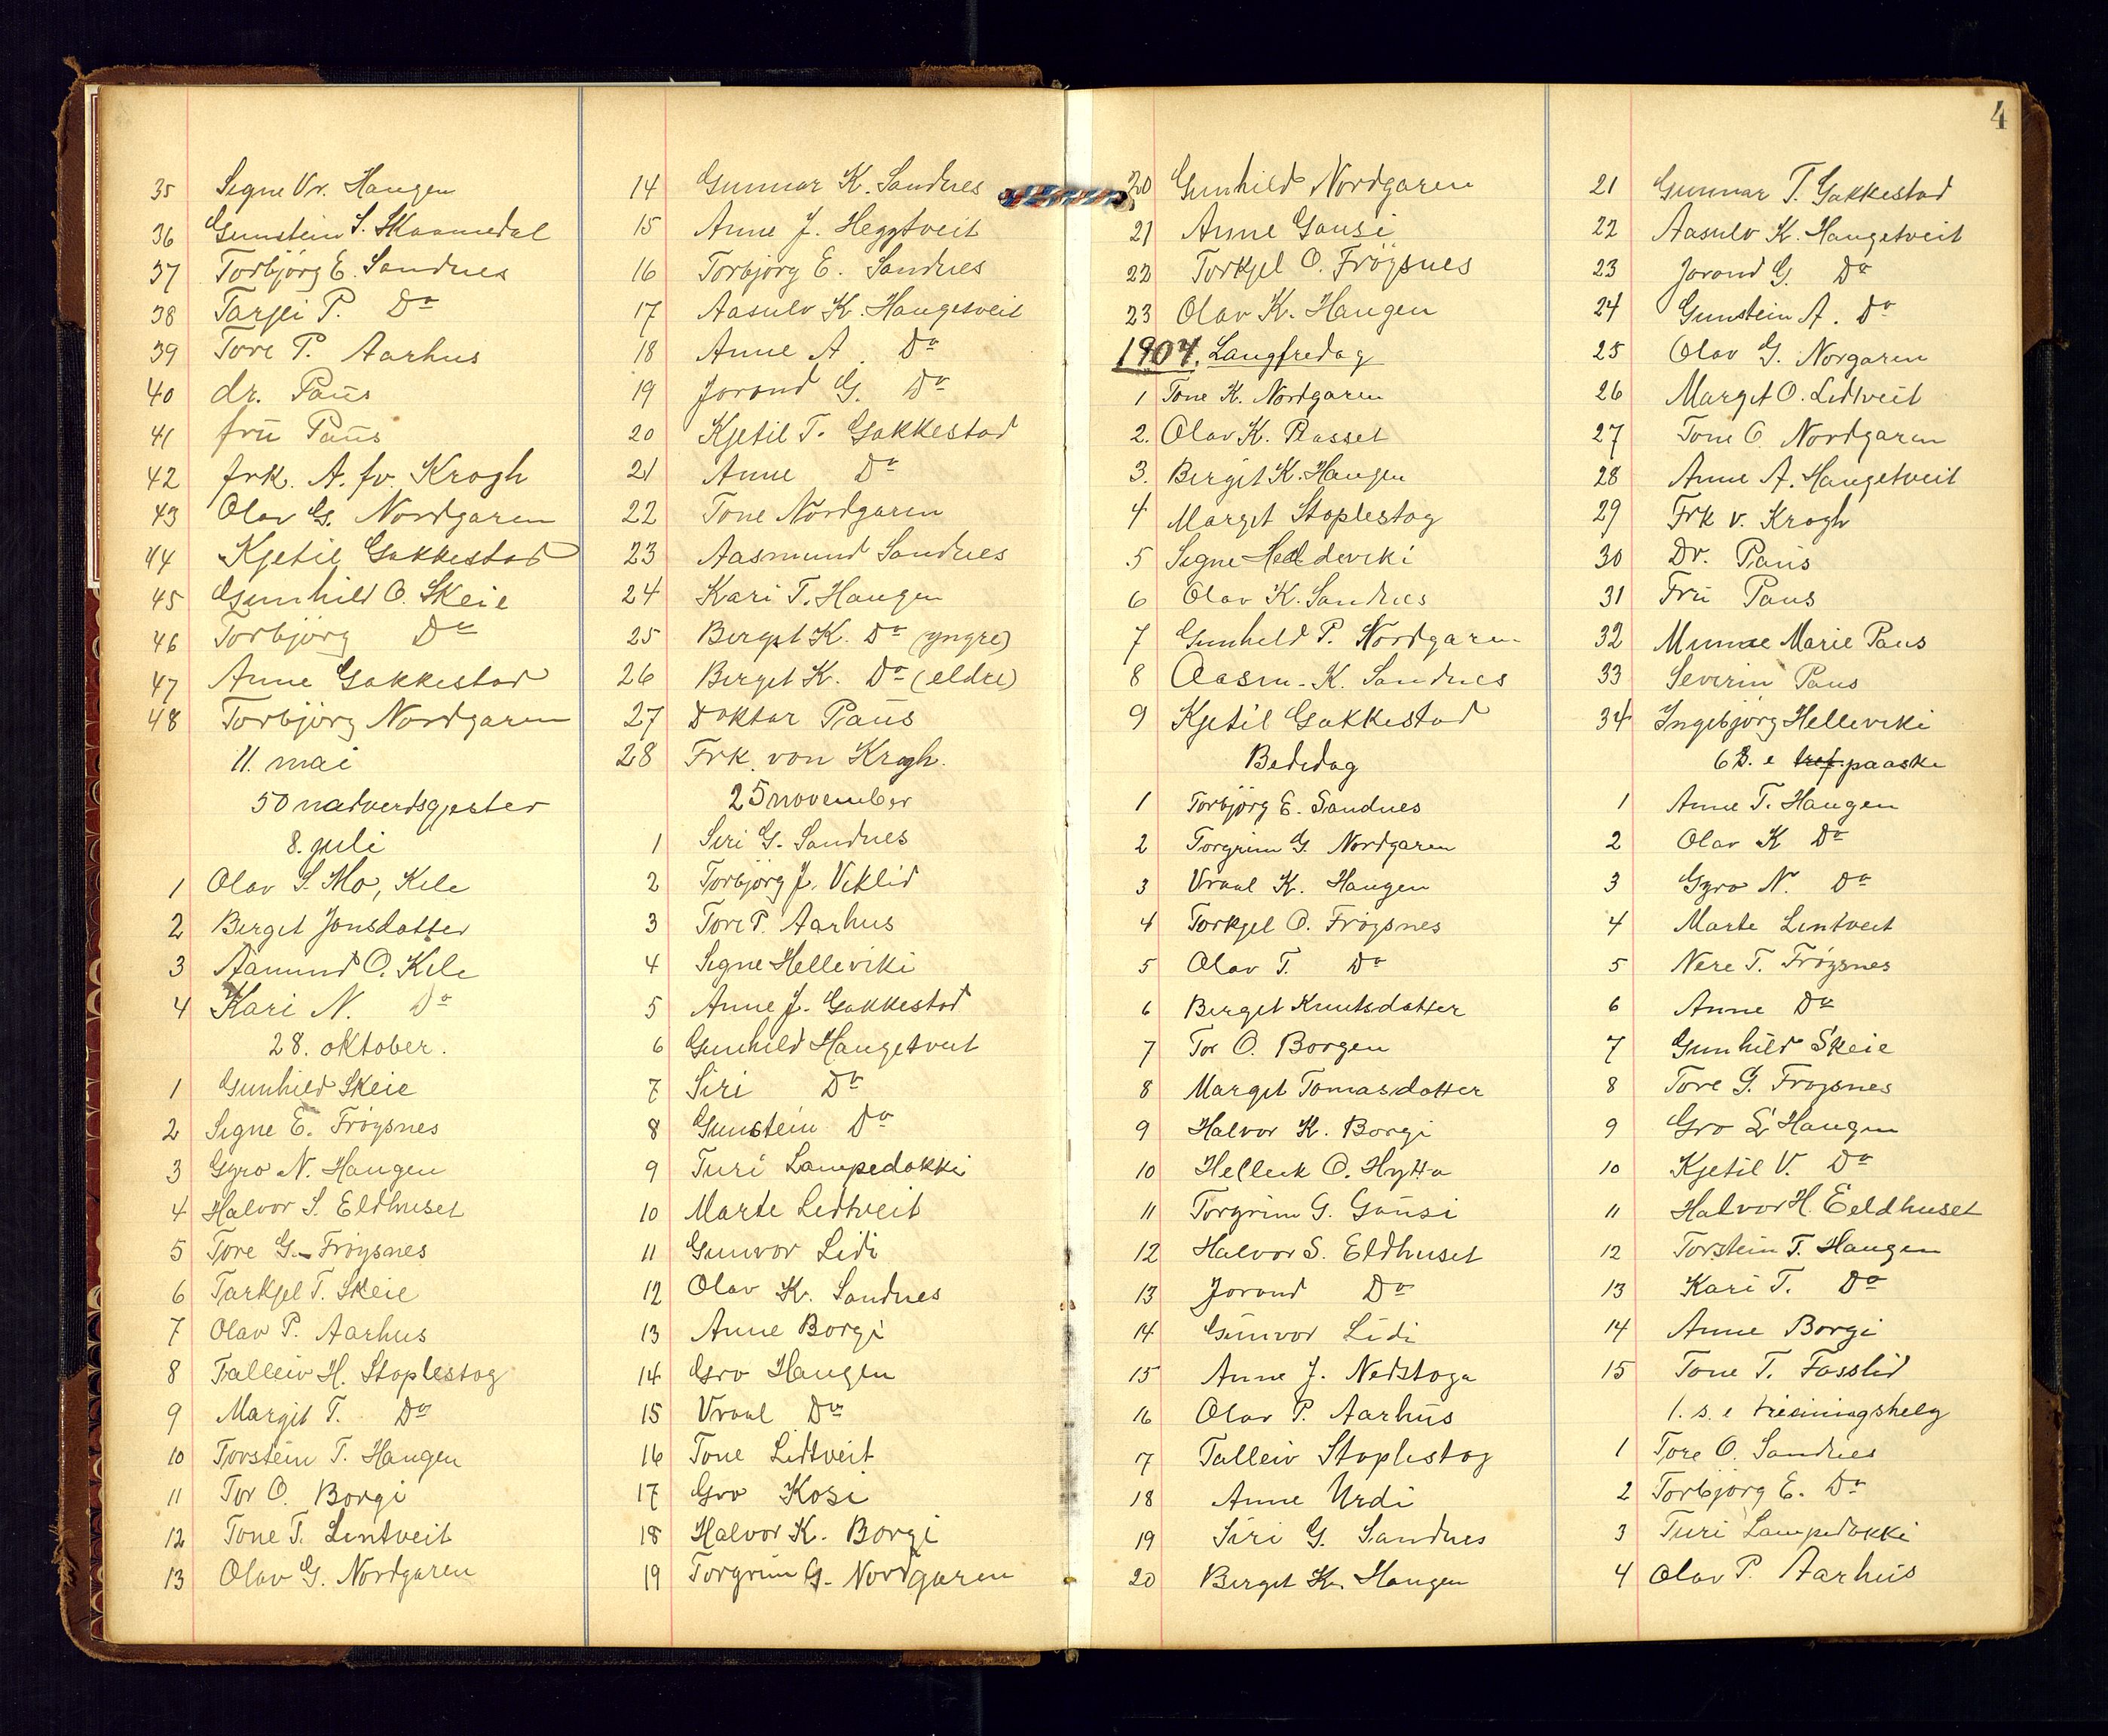 35 Signe Vr. Haugen
36 Gunstein S. Skaamedal
37 Torbjörg E. Sandnes
38 Tarjei P. Do
39 Tore P. Aarhus
40 dr. Paus
41 frü Paüs
42 frk. A. fv. Krogh
43 Olav G. Nordgaren
44 Kjetil Gakkestad
45 Gunhild O. Skeie
46 Torbjörg Do
47 Anne Gakkestad
48 Torbjörg Nordgaren
11. mai
50 nadverdsgjester
8. juli
1 Olav S. Mo, Kile
2 Berget Jonsdatter
3 Aamund O. Kile
4 Kari N. Do
28. oktober.
1 Gunhild Skeie
2 Signe E. Frøysnes
3 Gyro N. Haugen
4 Halvor S. Eldhuset
5 Tore G. Frøysnes
6 Tarkjel T. Skeie
7 Olav P. Aarhus
8 Talleiv H. Stoplestog
9 Margit T. Do
10 Torstein T. Haugen
11 Tor O. Borgi
12 Tone T. Lintveit
13 Olav G. Nordgaren
14 Gunnar K. Sandnes
15 Anne J. Heggtveit
16 Torbjörg E. Sandnes
17 Aasulv K. Haugetveit
18 Anne A. Do
19 Jorond G. Do
20 Kjetil T. Gakkestad
21 Anne Do
22 Tone Nordgaren
23 Aasmund Sandnes
24 Kari T. Haugen
25 Berget K. Do (yngre)
26 Berget K. Do (eldre)
27 Doktar Paüs
28 Frk. von Krogh.
25 november
1 Siri G. Sandnes
2 Torbjörg J. Viklid
3 Tore P. Aarhus
4 Signe Helleviki
5 Anne J. Gakkestad
6 Gunhild Haugetveit
7 Siri Do
8 Gunstein Do
9 Turi Lampedokki
10 Marte Lidtveit
11 Gunvor Lidi
12 Olav K. Sandnes
13 Anne Borgi
14 Gro Haugen
15 Vraal Do
16 Tone Lidtveit
17 Gro Kosi
18 Halvor K. Borgi
19 Torgrim G. Nordgaren
4
20 Gunhild Nordgaren
21 Anne Gausi
22 Torkjel O. Frøysnes
23 Olav K. Haugen
1904. Langfredag
1 Tone K. Nordgaren
2. Olav K. Rasset
3. Bergit K. Haugen
4 Marget Stoplestog
5 Signe Helleviki
6 Olav K. Sandnes
7 Gunhild P. Nordgaren
8 Aasm. K. Sandnes
9 Kjetil Gakkestad
Bededag
1 Torbjörg E. Sandnes
2 Torgrim G. Nordgaren
3 Vraal K. Haugen
4 Torkjel O. Frøysnes
5 Olav T. Do
6 Berget Knutsdatter
7 Tor O. Borgen
8 Marget Tomasdatter
9 Halvor K. Borgi
10 Helleik O. Hytta
11 Torgrim G. Gausi
12 Halvor S. Eldhuset
13 Jorond Do
14 Gunvor Lidi
15 Anne J. Nedstoga
16 Olav P. Aarhüs
17 Talleiv Stoplestog
18 Anne Urdi
19 Siri G. Sandnes
20 Berget K. Haugen
21 Gunnar T. Gakkestad
22 Aasulv K. Haugetveit
23 Jorond G. Do
24 Gunstein A. Do
25 Olav G. Norgaren
26 Marget O. Lidtveit
27 Tone O. Nordgaren
28 Anne A. Haugetveit
29 Frk v. Krogh
30 Dr. Paüs
31 Frü Paus
32 Marie Paus
33 Severin Paus
34 Ingebjörg Helleviki
6 S. e paaske
1 Anne T. Haugen
2 Olav K Do
3 Gyro N. Do
4 Marte Lintveit
5 Nere T. Frøysnes
6 Anne Do
7 Gunhild Skeie
8 Tore G. Frøysnes
9 Gro Haugen
10 Kjetil V. Do
11 Halvor H. Eeldhuset
12 Torstein T. Haugen
13 Kari T. Do
14 Anne Borgi
15 Tone T. Fosslid
1. s. e treiningshelg
1 Tore O. Sandnes
2 Torbjörg E. Do
3 Turi Lampedokki
4 Olav P. Aarhus